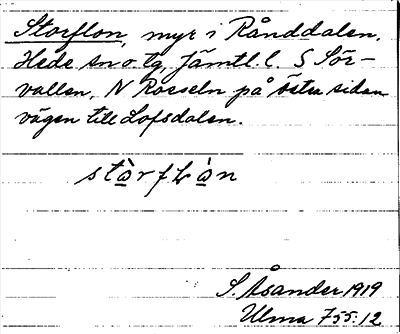 Storflon, myr i Rånddalen,
Hede sn o tg, Jämtl. l. S Sör-
vallen, N Rosseln på östra sidan
vägen till Lofsdalen.
stòrfLòn
S. Åsander 1919
Ulma 755:12